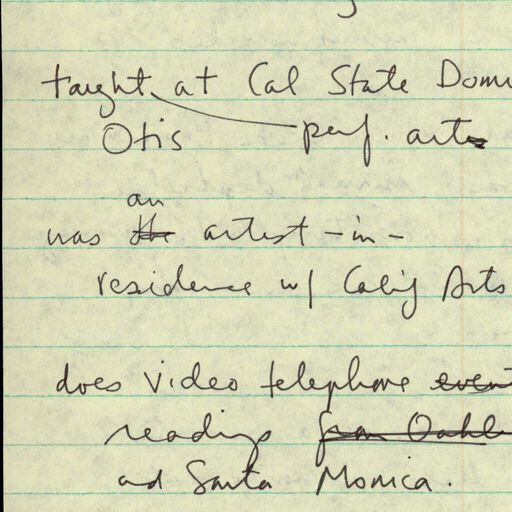 taught at Cal State Dom
Otis perf. art
an
was the artist-in-
residence w/ Calif Arts
does video telephone event
readings from Oakl
and Santa Monica.